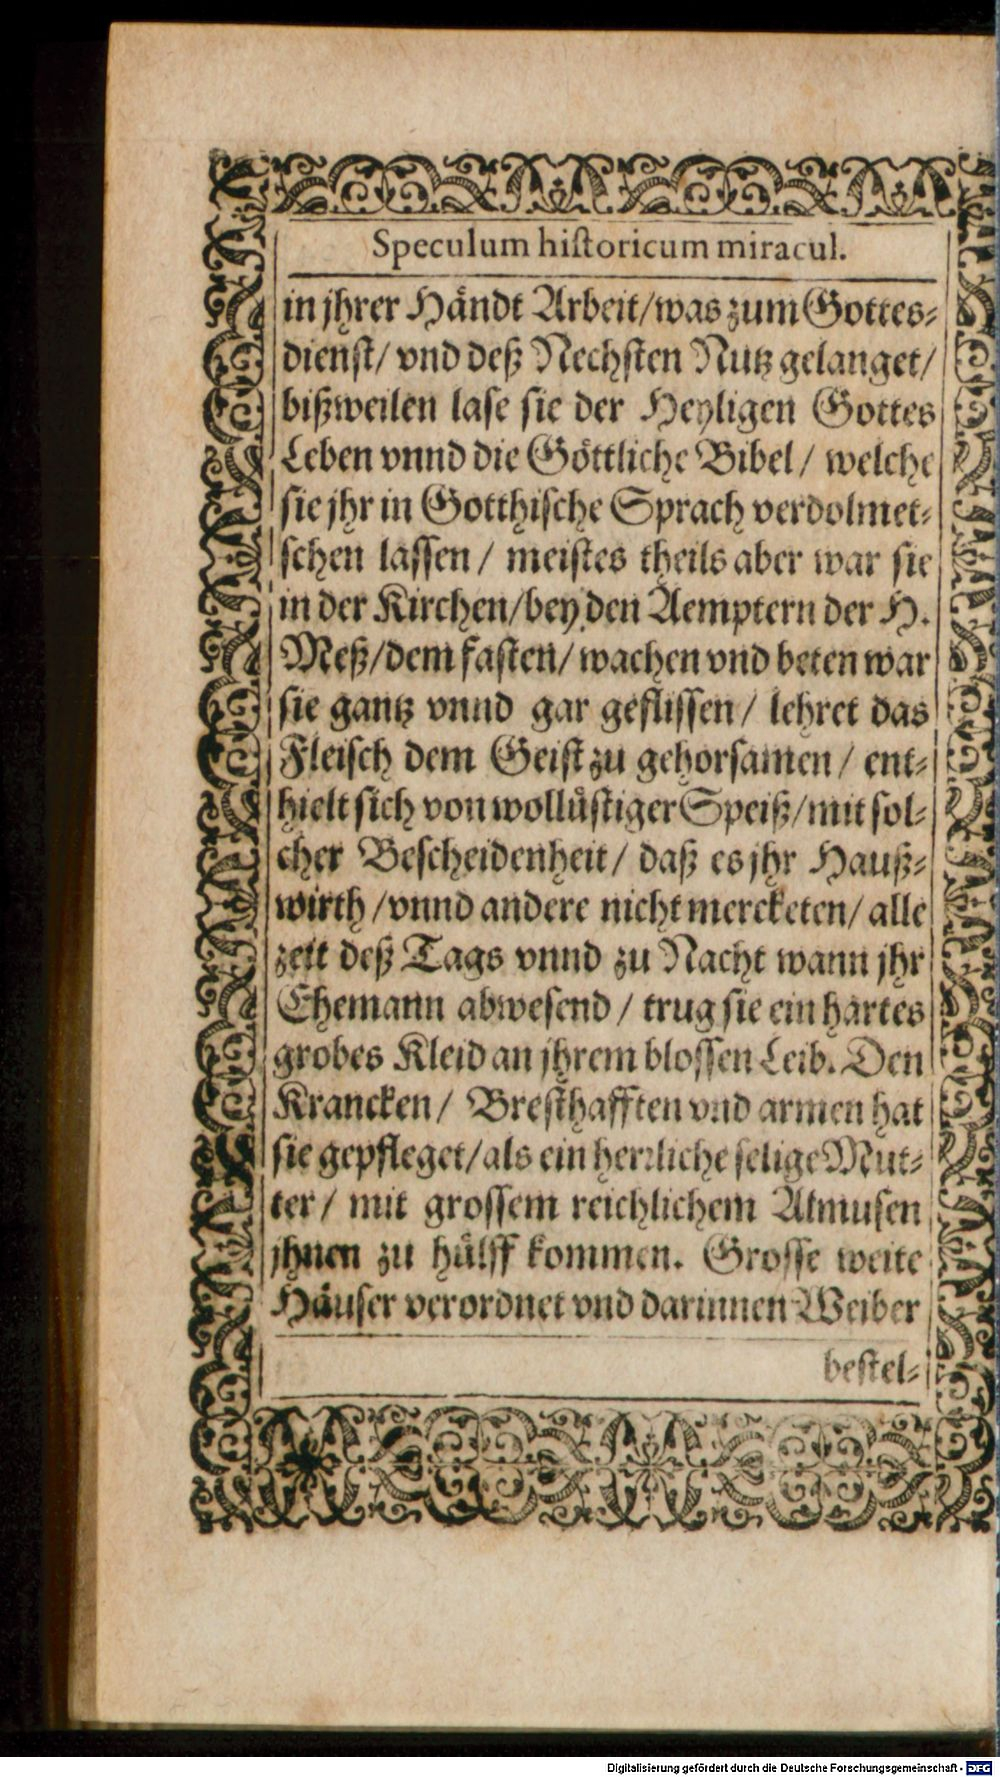 Speculum historicum miracul.
in jhrer Händt Arbeit/was zum Gottes-
dienst/ vnd deß Nechsten Nutz gelanget/
bißweilen lase sie der Heyligen Gottes
Leben vnnd die Göttliche Bibel/ welche
sie jhr in Gotthische Sprach verdolmet-
schen lassen/ meistes theils aber war sie
in der Kirchen/bey den Aemptern der H.
Meß/dem fasten/ wachen vnd beten war
sie gantz vnnd gar geflissen/ lehret das
Fleisch dem Geist zu gehorsamen/ ent-
hielt sich von wollüstiger Speiß/mit sol-
cher Bescheidenheit/ daß es jhr Hauß-
wirth/vnnd andere nicht mercketen/ alle
zeit deß Tags vnnd zu Nacht wann jhr
Ehemann abwesend/ trug sie ein hartes
grobes Kleid an jhrem blossen Leib. Den
Krancken/ Bresthafften vnd armen hat
sie gepfleget/als ein herrliche selige Mut-
ter/ mit grossem reichlichem Almusen
jhnen zu hülff kommen. Grosse weite
Häuser verordnet vnd darinnen Weiber
bestel-
Digitalisierung gefördert durch die Deutsche Forschungsgemeinschaft - DFG